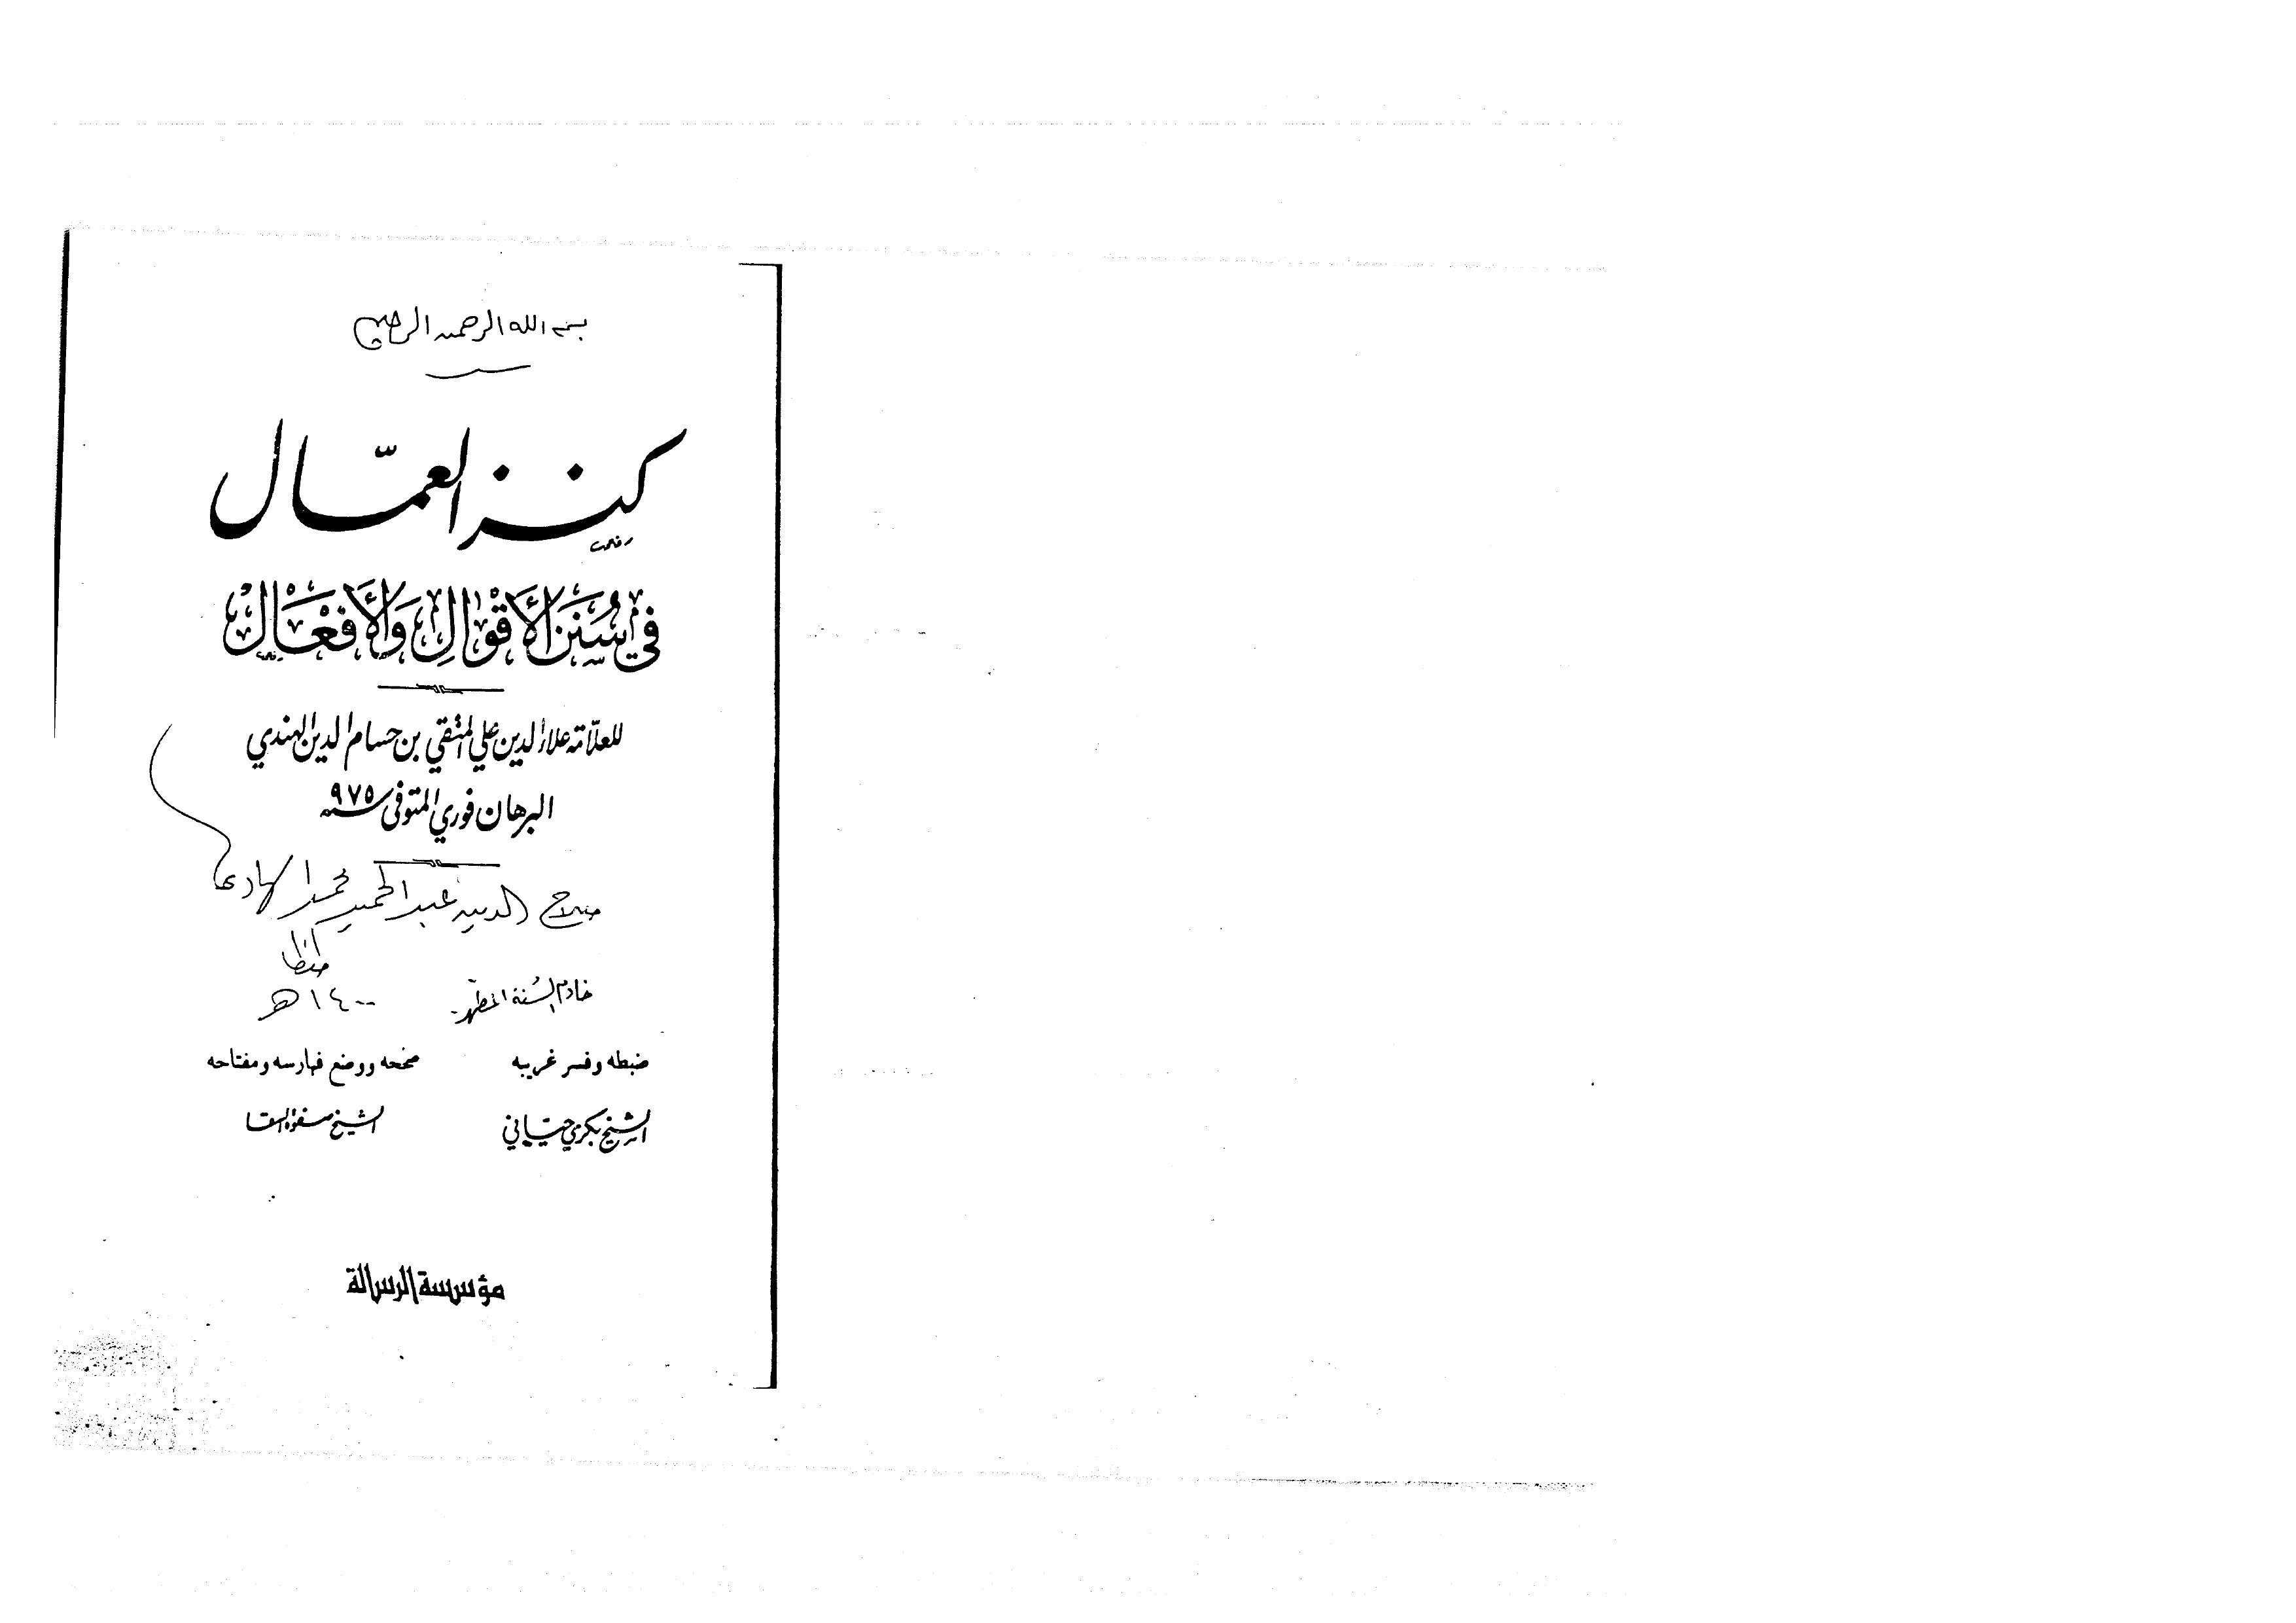 بسم الله الرحمن الرحيم
كنز العمّال
في سُنَنِ الأَقْوَالِ وَالأَفْعَالِ
للعلّامة علاء الدين علي المتقي بن حسام الدين الهندي
البرهان فوري المتوفى سنة ٩٧٥
صلاح الدين عبد الحميد محمد الهادي
طنطا
خادم السُنة المطهّرة ١٤٠٠ هـ
ضبطه وفسر غريبه صححه ووضع فهارسه ومفتاحه
الشيخ بكري حيّاني الشيخ صفوة السقا
مؤسسة الرسالة